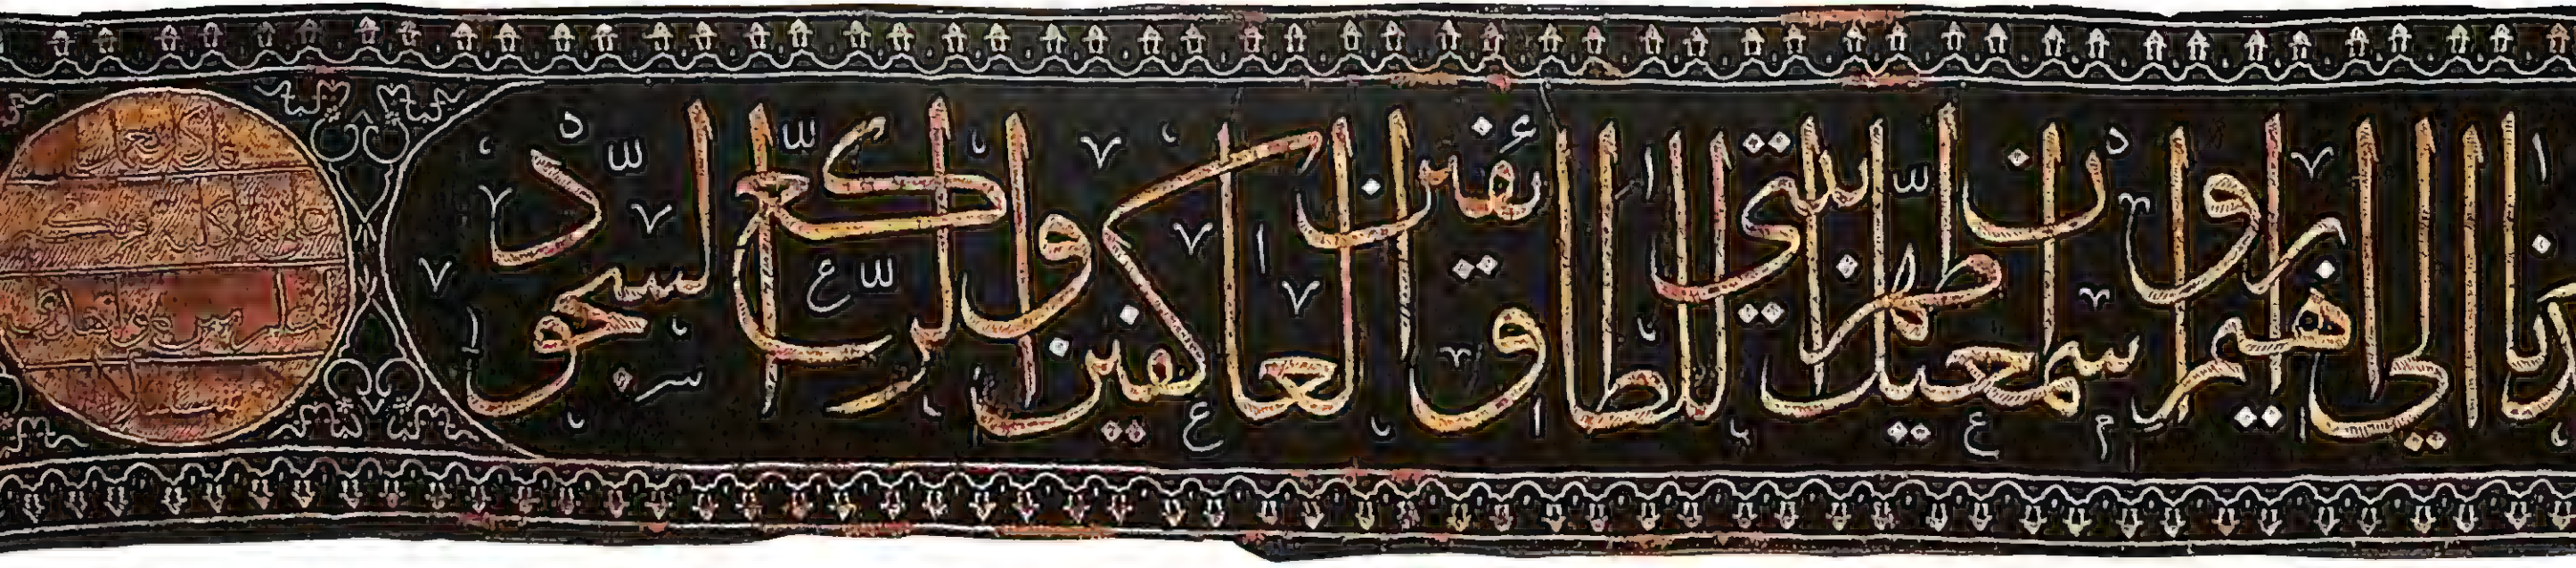 دنا الى ابرهيم واسمعيل ان طهرا بيتي للطائفين والعاكفين والركع السجود